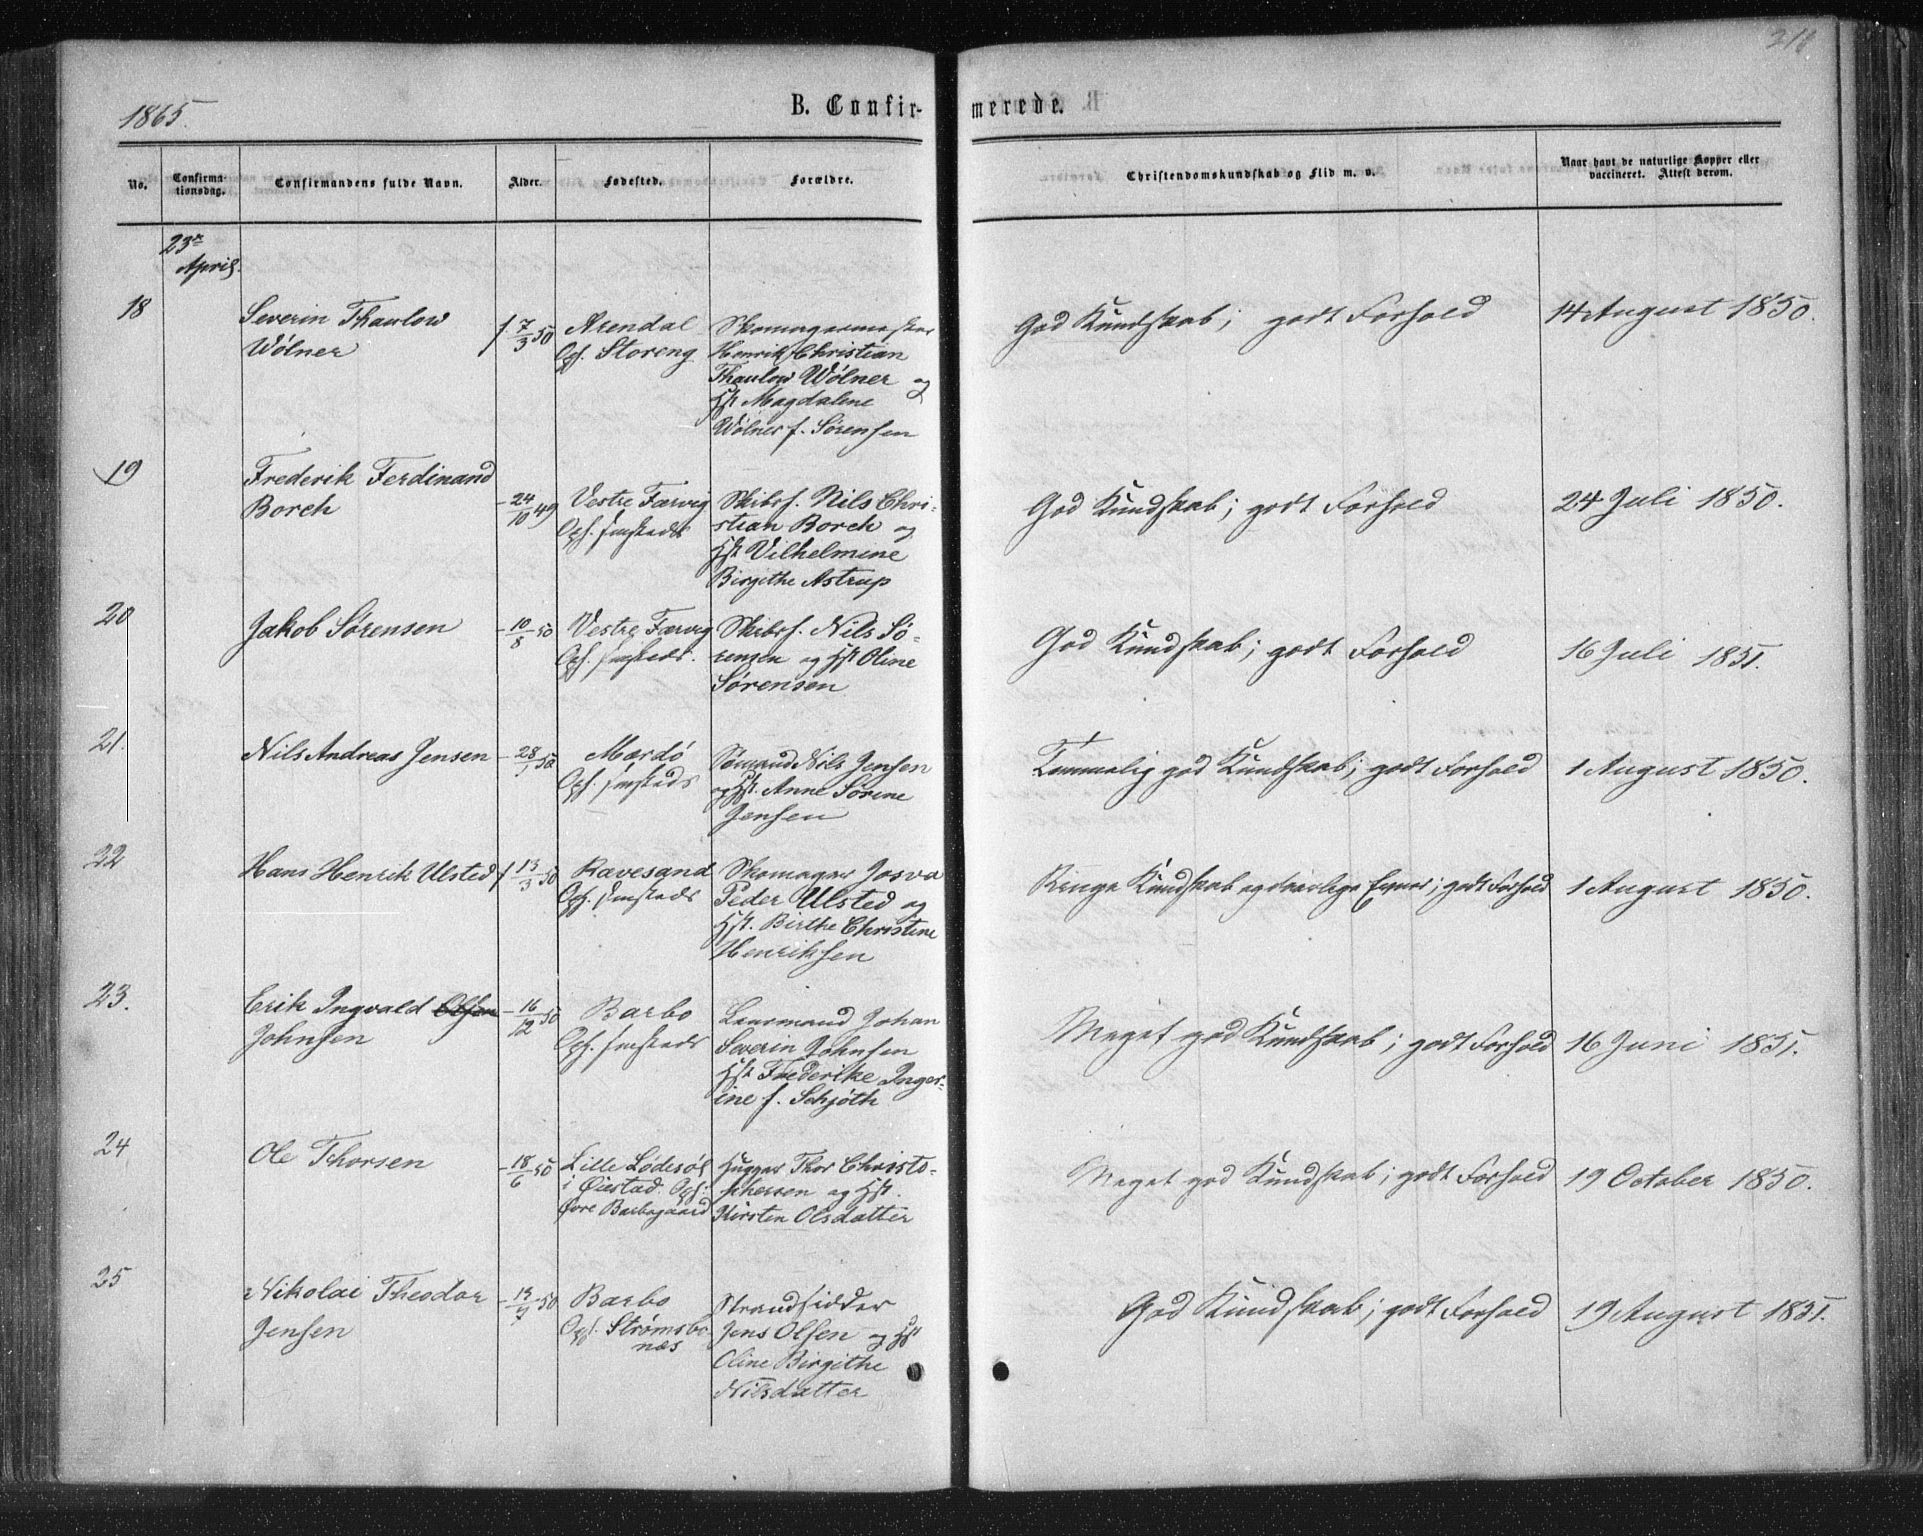 218
1865.
B. Confir-
merede.
No.
Confirma-
tionsdag.
Confirmandens fulde Navn.
Alder.
Fødested.
Forældre.
Christendomskundskab og Flid m. v.
Naar havt de naturlige Kopper eller
vaccineret. Attest derom.
23de
April.
18
Severin Thaulow
Wølner
f 7/3 50
Arendal
Oph. Storeng
Skomagermester
Henrik Christian
Thaulow Wølner og
Hst Magdalene
Wølner f. Sørensen
God Kundskab; godt Forhold
14 August 1850.
19
Frederik Ferdinand
Borch
- 24/10 49
Vestre Færvig
Oph. sammesteds
Skibsf. Nils Chri-
stian Borch og
Hst Vilhelmine
Birgithe Astrup
God Kundskab; godt Forhold
24 Juli 1850.
20
Jakob Sørensen
- 10/8 50
Vestre Færvig
Oph. sammesteds.
Skibsf. Nils Sø-
rensen og Hst Oline
Sørensen
God Kundskab; godt Forhold
16 Juli 1851.
21.
Nils Andreas Jensen
- 28/1 50
Mærdø
Oph. sammesteds
Sømand Nils Jensen
og Hst. Anne Sørine
Jensen
Temmelig god Kundskab; godt Forhold
1 August 1850.
22
Hans Henrik Ulsted
f 13/3 50
Ravesand
Oph. sammesteds
Skomager Josva
Peder Ulsted og
Hst. Birthe Christine
Henriksen
Ringe Kundskab og svage Evner; godt Forhold
1 August 1850.
23.
Erik Ingvald Olsen
Johnsen
- 16/12 50
Barbo
Oph. sammesteds
Lensmand Johan
Severin Johnsen
Hst Frederike Inger-
ine f. Schjøth
Meget god Kundskab; godt Forhold
16 Juni 1851.
24
Ole Thorsen
- 18/6 50
Lille Lødesøl
i Øiestad. Oph:
Øvre Barbogaard
Hugger Thor Christo-
phersen og Hst.
Kirsten Olsdatter
Meget god Kundskab; godt Forhold
19 October 1850.
25
Nikolai Theodor
Jensen
- 13/7 50
Barbo
Oph. Strømsbo
næs
Strandsidder
Jens Olsen og Hst
Oline Birgithe
Nilsdatter
God Kundskab; godt Forhold
19 August 1851.